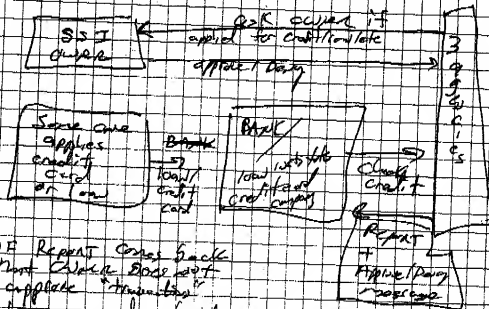 ASK OWNER if
applied for credit/loan/etc
SSI
OWNER
approve/Deny
3
a
g
e
n
c
i
e
s
Some one
applies
credit
Card
or loan
BANK
loan/
credit
card
BANK/
loan institute
credit card
company
Check
credit
REPORT
+
Approve/Deny
message
IF REPORT comes back
that OWNER Does not
approve "transaction"